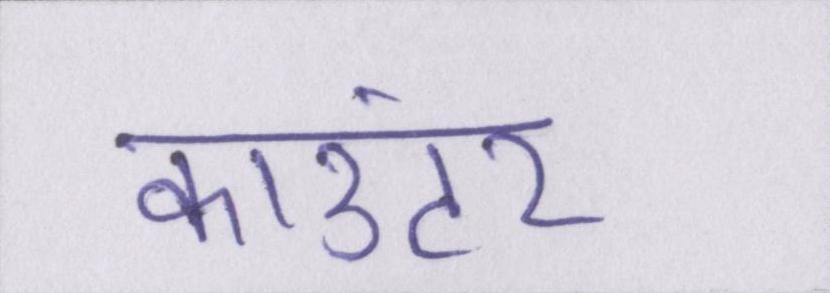 काउंटर